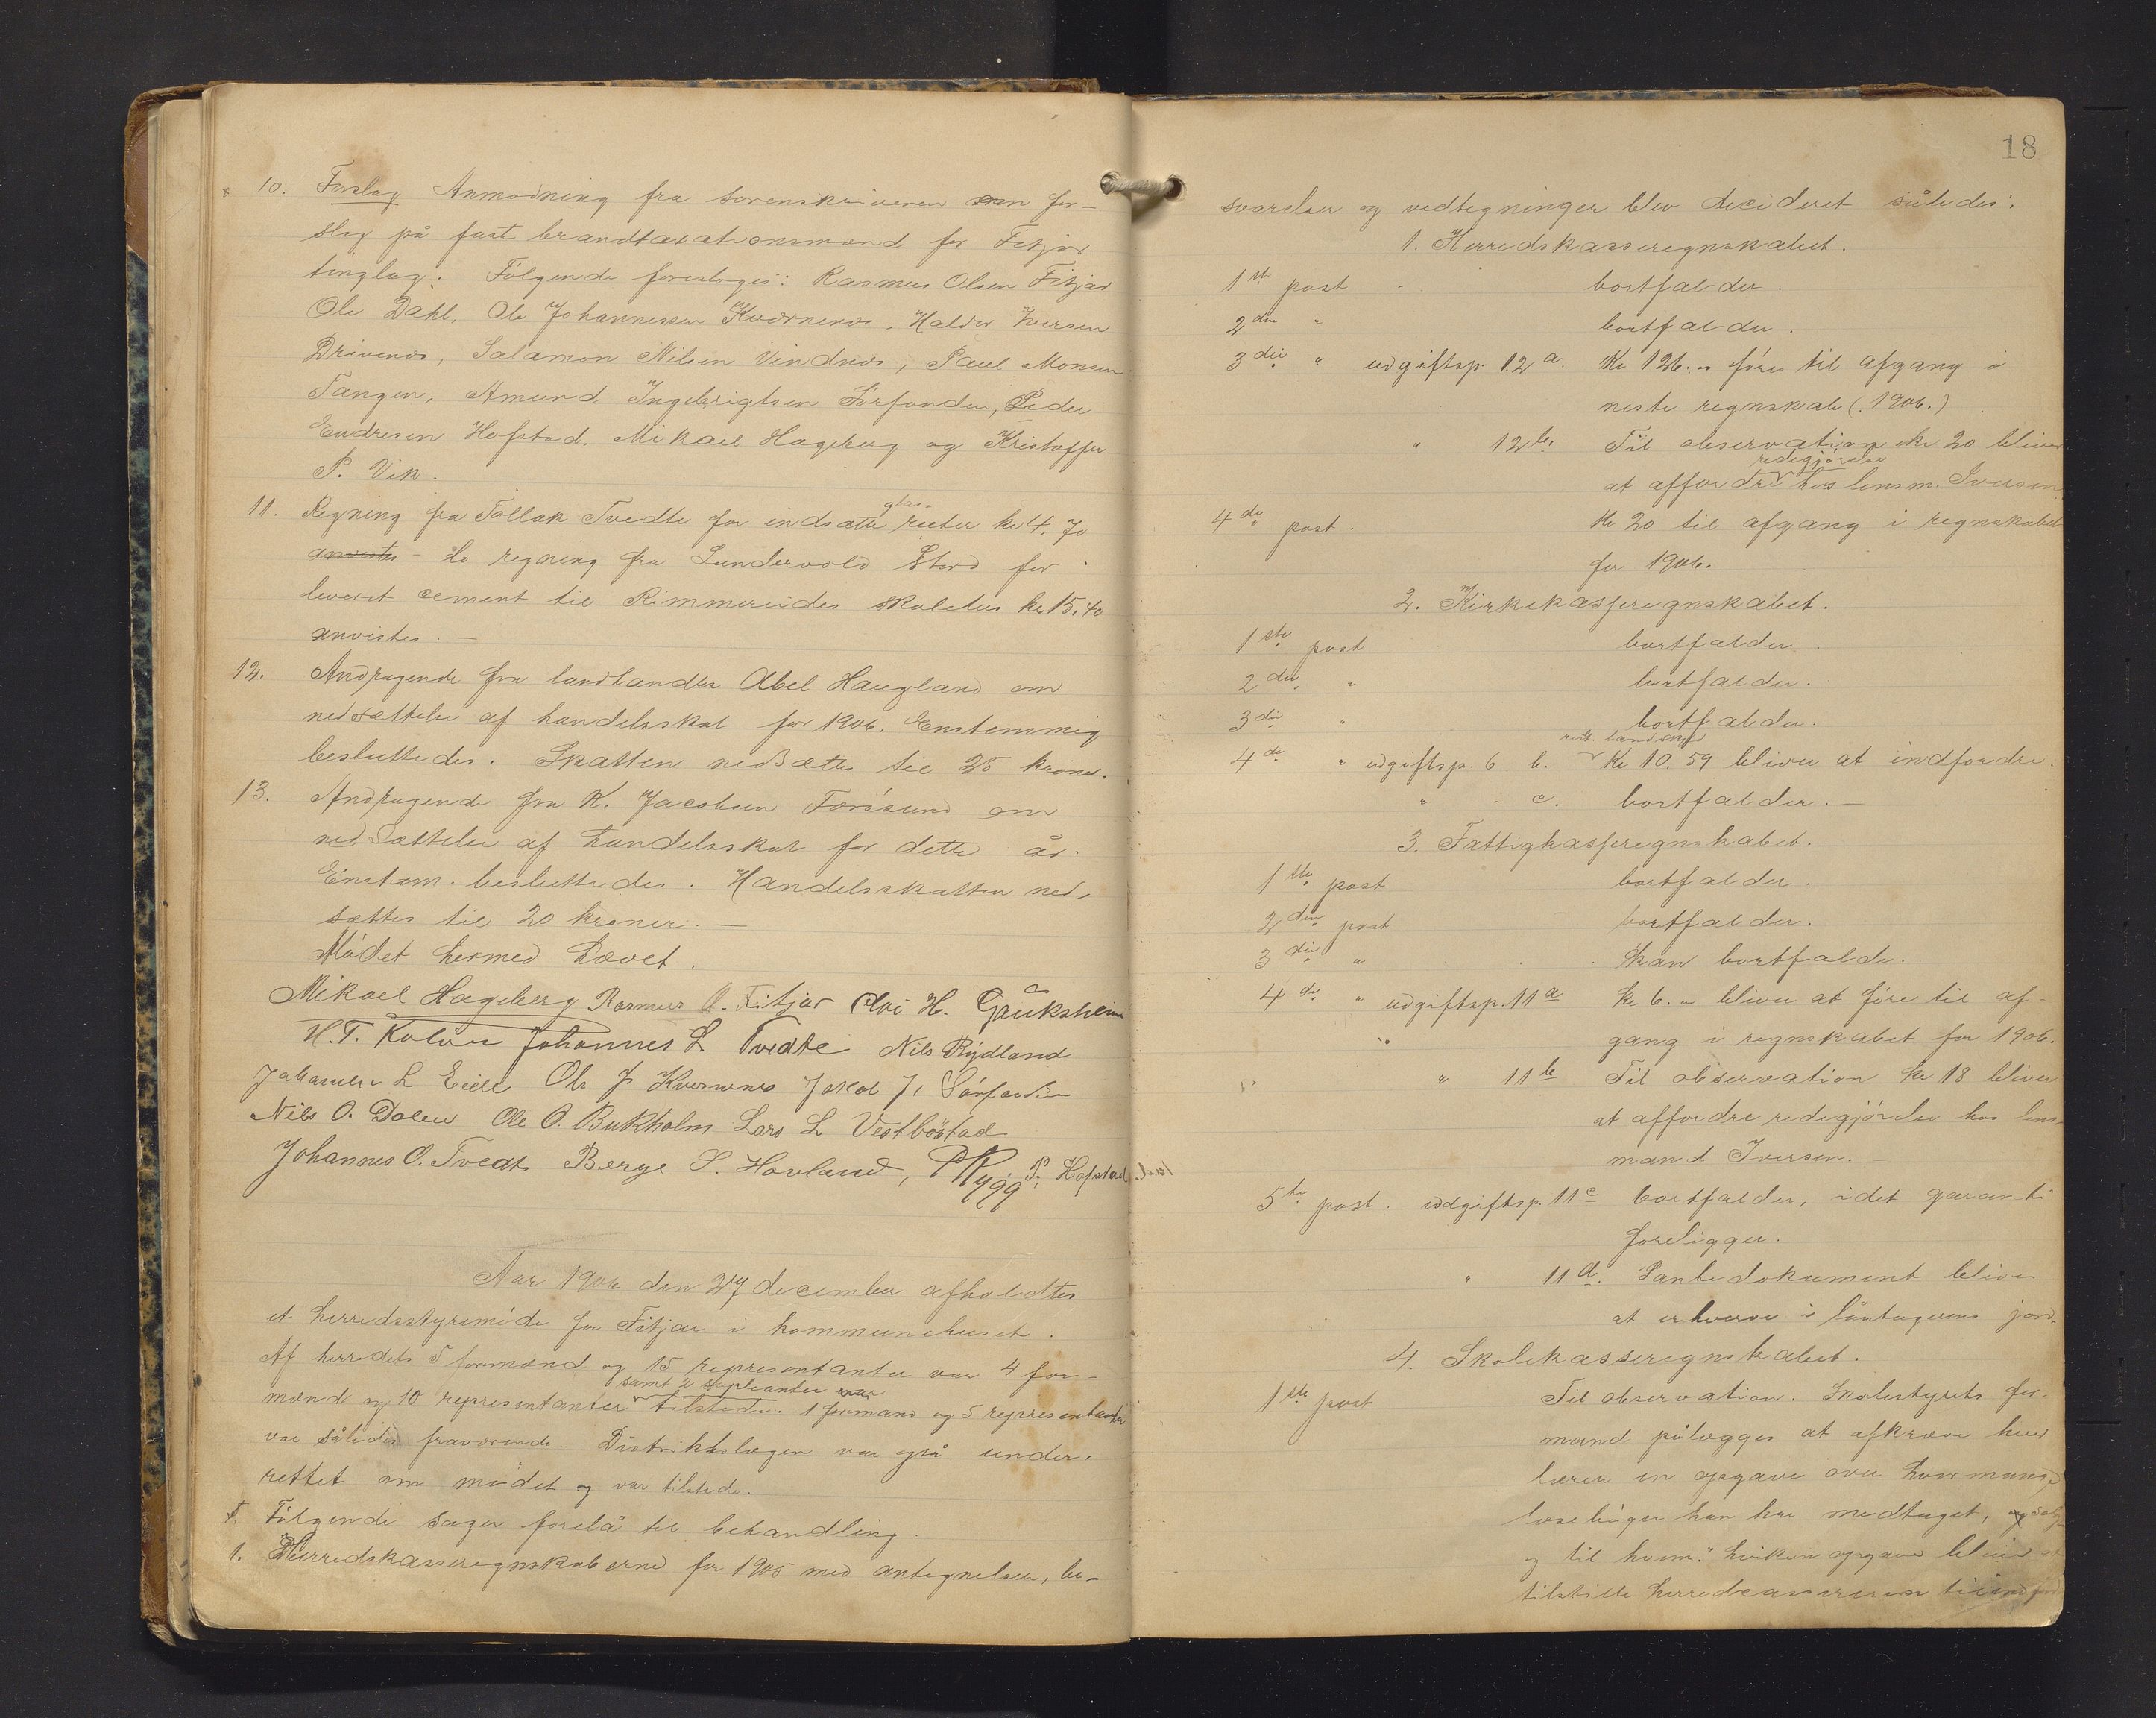 10. Forslag Anmodning fra sorenskriveren om for-
slag på fast brandtaxationsmænd for Fitjar
tinglag: Følgende foresloges: Rasmus Olsen Fitjar
Ole Dahl, Ole Johannessen Kværnenæs, Haldor Iversen
Drivenes, Salamon Nilsen Vindnæs, Paul Monsen
Tangen, Amund Ingebrigtsen Sørfonden, Peder
Endresen Hofstad, Mikael Hageberg og Kristoffer
P. Vik.
11. Regning fra Tollak Tvedte for indsatte glas- ruter kr 4.70
anvistes - Do regning fra Sundervold Stord for
leveret cement til Rimmereides skolehus kr 15.40
anvistes. -
12. Andragende fra landhandler Abel Haugland om
nedsættelse af handelsskat for 1906. Enstemmig
besluttedes. Skatten nedsættes til 25 kroner.
13. Andragende fra K. Jacobsen Førøsund om
nedsættelse af handelsskat for dette år.
Enstem. besluttedes. Handelsskatten ned-
sættes til 20 kroner. -
Mødet hermed hævet.
Mikael Hageberg Rasmus O. Fitjar H. Gåuksheim
H. T. Koløen Johannes L Tvedte Nils Rydland
Johannes L Eide Ole J Kvernenes Jakob J. Sørfonden
Nils O. Dalen Ole O. Bukholm Lars L Vestbøstad
Johannes O. Tvedt Børge S. Hovland, P Rygg P. Hofstad
Aar 1906 den 27 december afholdtes
et herredsstyremøde for Fitjar i kommunehuset.
Af herredets 5 formænd og 15 repræsentanter var 4 for-
mænd og 10 representanter samt 2 supleanter var tilstede. 1 formand og 5 representanter
var således fraværende. Distriktslægen var også under-
rettet om mødet og var tilstede.
Følgende sager forelå til behandling.
1. Herredskasseregnskaberne for 1905 med antegnelser, be-
18
svarelser og vedtegninger blev decideret således:
1. Herredskasseregnskabet.
1ste post bortfalder.
2den " bortfalder.
3die " udgiftsp. 12 a. Kr 126.- føres til afgang i
neste regnskab (1906.)
" 12 b. Til observation kr 20 bliver
at affordre redegjørelse hos lensm. Iversen
4de post. Kr 20 til afgang i regnskabet
for 1906.
2. Kirkekasseregnskabet.
1ste post bortfalder.
2den " bortfalder.
3die " bortfalder.
4de " udgiftsp. 6 b. Kr 10.59 bliver at indfordre.
" - c. bortfalder. -
3. Fattigkasseregnskabet.
1ste post bortfalder.
2den post bortfalder.
3die " kan bortfalde.
4de " udgiftsp. 11 a kr 6.- bliver at føre til af-
gang i regnskabet for 1906.
" 11 b Til observation kr 18 bliver
at affordre redegjørelse hos lens-
mand Iversen. -
5te post. udgiftsp. 11 c bortfalder, idet garanti
foreligger.
" 11 d. Pantedokument bliver
at erhverve i låntagerens jord.
4. Skolekasseregnskabet.
1ste post Til observation. Skolestyrets for-
mand pålægges at afkræve hver
lærer en opgave over hvor mange
læsebøger han har modtaget, og solgt
og til hvem. hvilken opgave bliver at
tilstille herredskassereren til